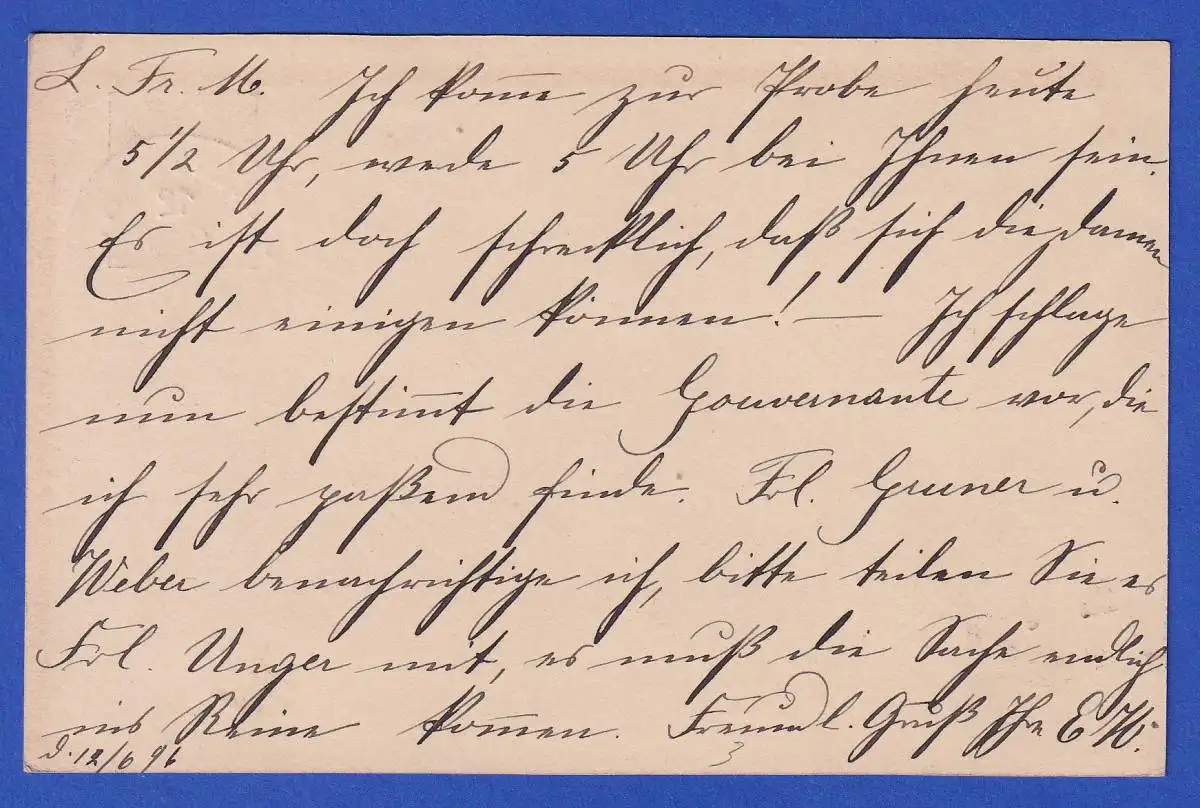 L. Fr. M. Ich kom̅e zur Probe heute
5 1/2 Uhr, werde 5 Uhr bei Ihnen sein.
Es ist doch schrecklich, daß sich die Damen
nicht einigen können! — Ich schlage
nun bestim̅t die Gouvernante vor, die
ich sehr paßend finde. Frl. Gruner u.
Weber benachrichtige ich, bitte teilen Sie es
Frl. Unger mit, es muß die Sache endlich
ins Reine kom̅en. Freundl. Gruß Ihre E. W.
d. 12/6 96